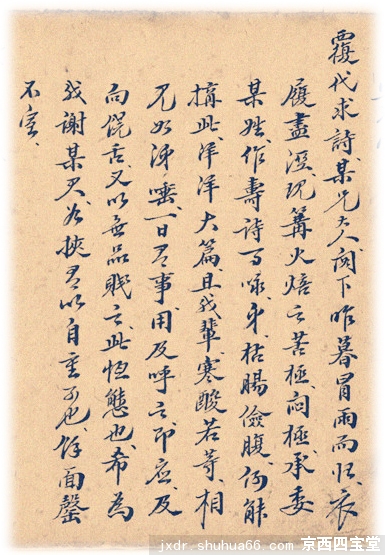 覆代求詩、某兄大人閣下昨暮冒雨而歸衣
履盡溼、現篝火焙之苦極、悶極、承委
某姓作壽詩百咏、弟枯腸儉腹、何能
搆此洋洋大篇、且我輩寒酸、若等相
見如涕唾、一日有事用及呼之即應、及
向饒舌、又以無品貶之、此恆態也、希為
我謝某君、如挾有以自重可也、餘面罄
不宣、
jxdr.shuhua66.com
京西四宝堂